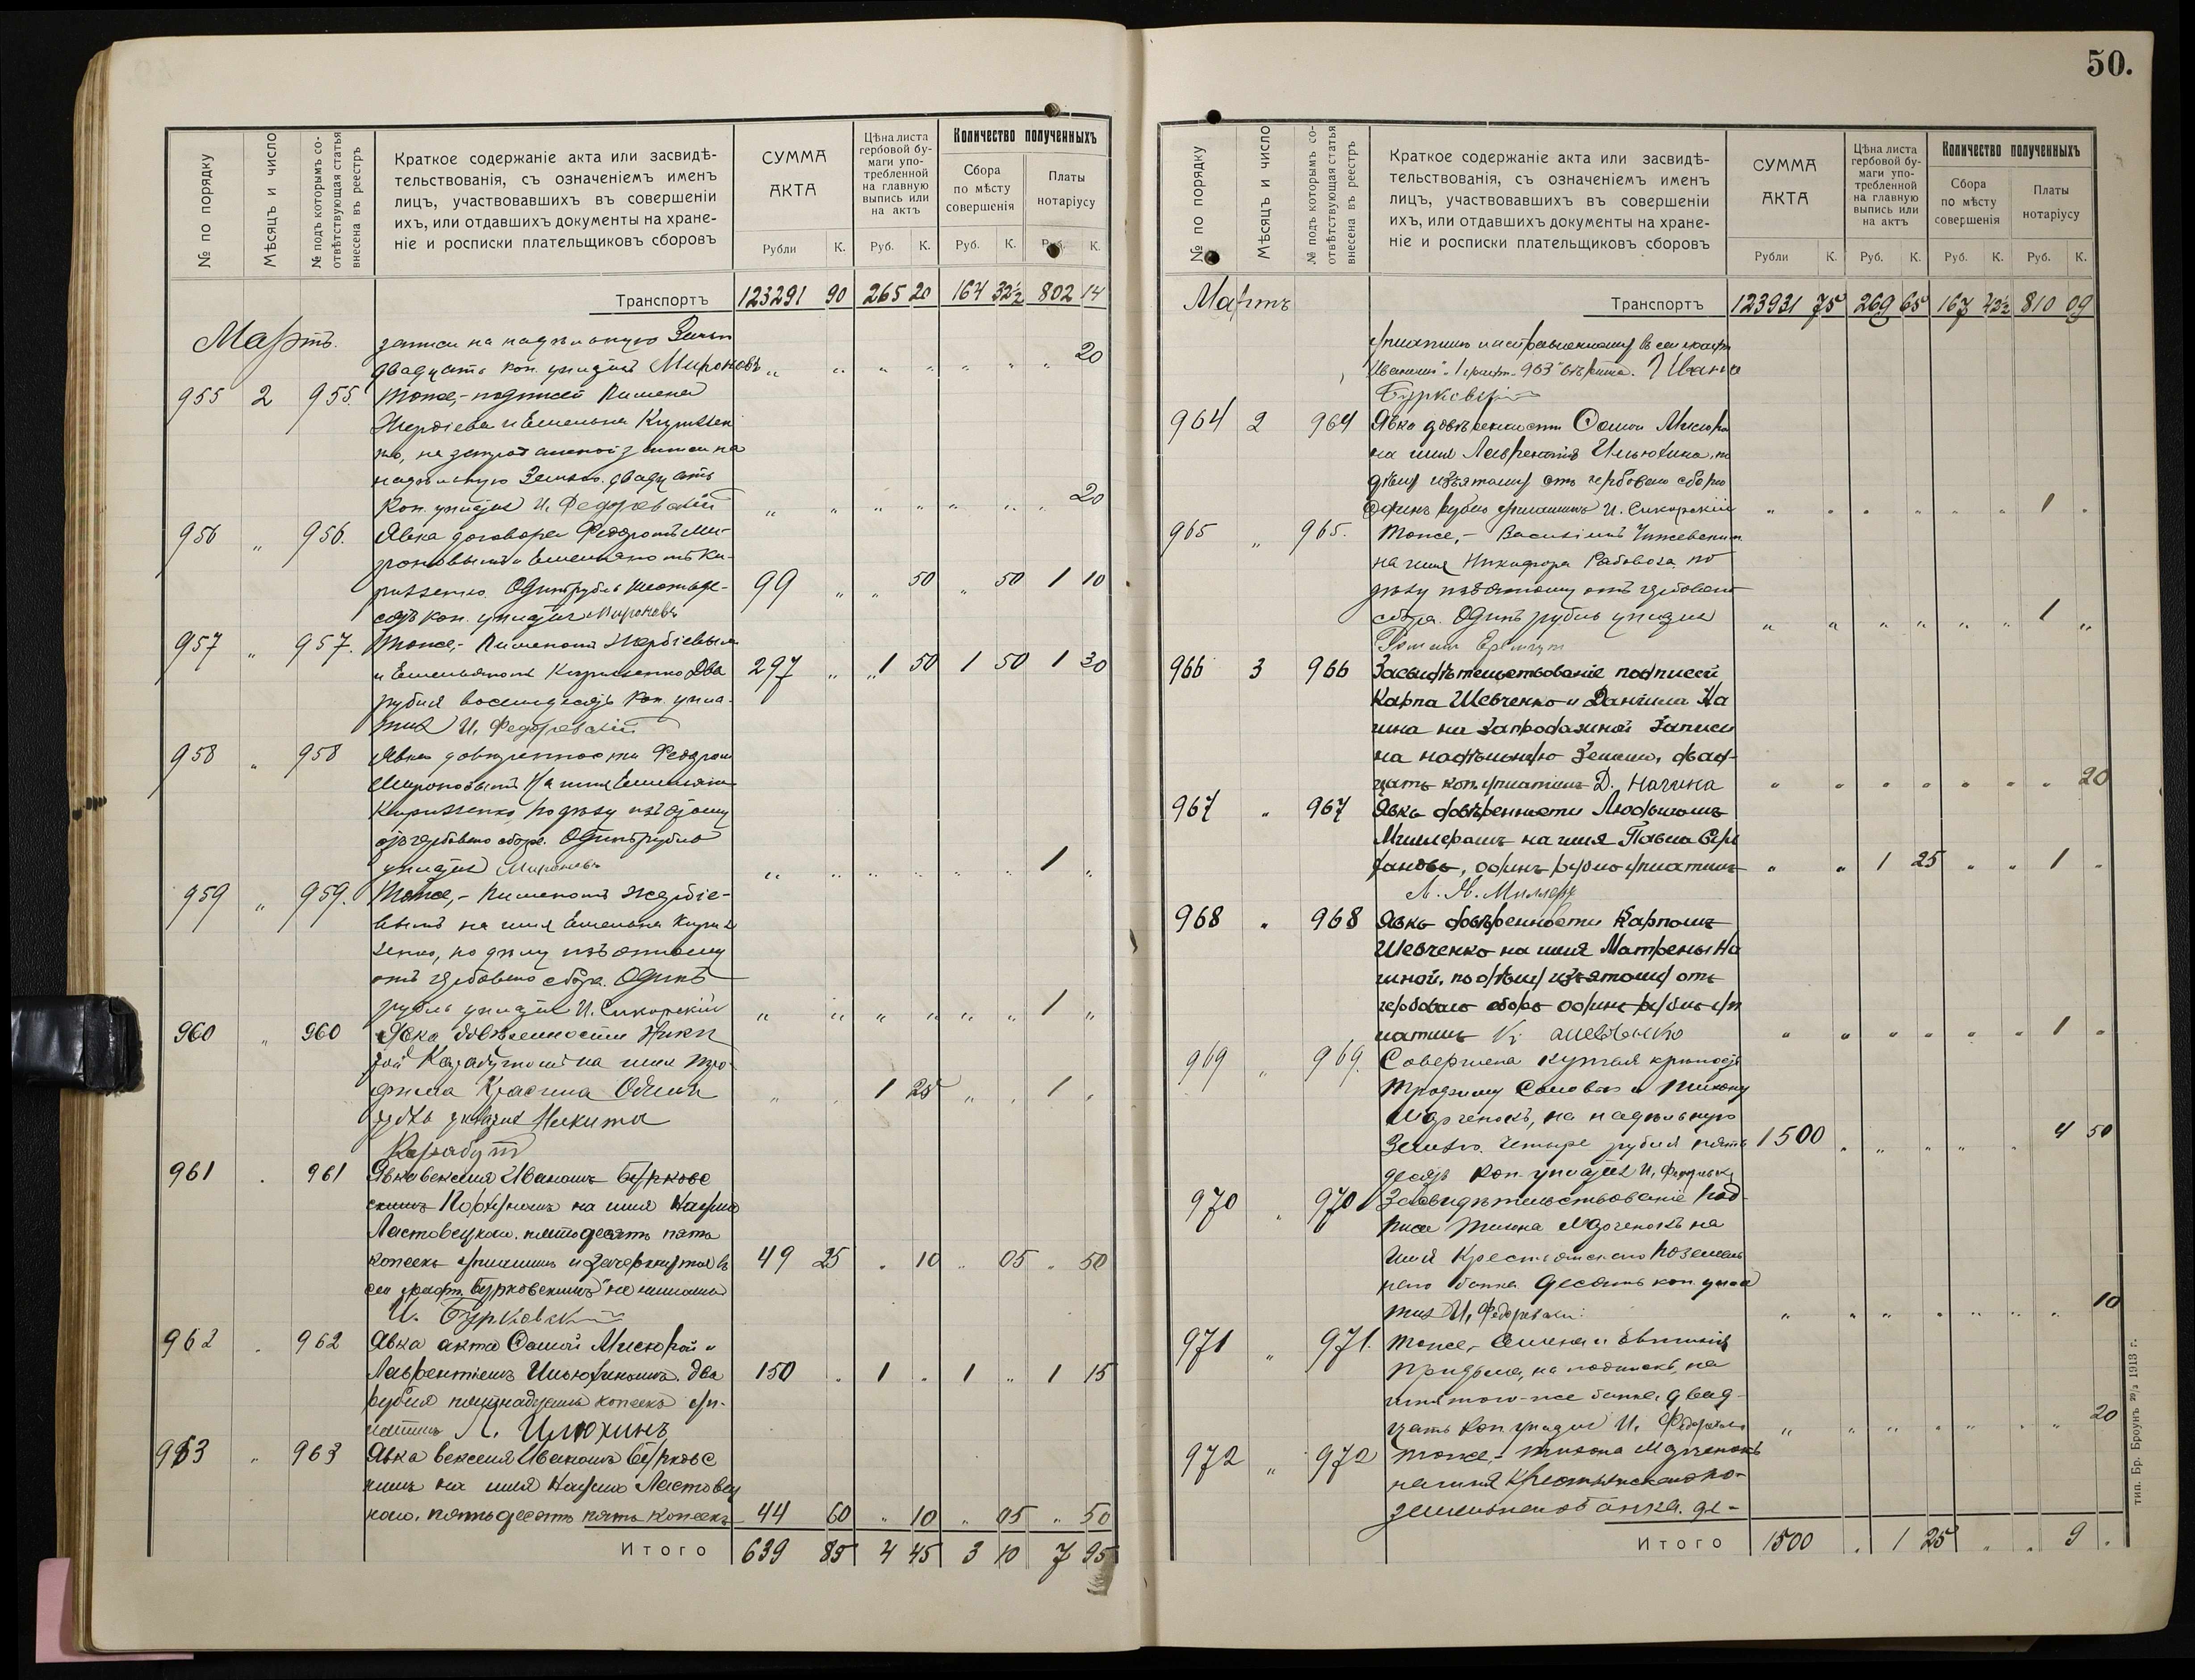 50.
№ по порядку
Мѣсяцъ и число
№ подъ которымъ со-
отвѣтствующая статья
внесена въ реестръ
Краткое содержаніе акта или засвидѣ-
тельствованія, съ означеніемъ именъ
лицъ, участвовавшихъ въ совершеніи
ихъ, или отдавшихъ документы на хране-
ніе и росписки плательщиковъ сборовъ
СУММА
АКТА
Цѣна листа
гербовой бу-
маги упо-
требленной
на главную
выпись или
на актъ
Количество полученныхъ
Сбора
по мѣсту
совершенія
Платы
нотаріусу
Рубли К. Руб. К. Руб. К. Руб. К.
Транспортъ 123291 90 265 20 164 32½ 802 14
Мартъ. записи на надѣльную Землю
двадцать коп. уплатилъ Мироновъ „ „ „ „ „ „ „ 20
955 2 955. Тоже,- подписей Пимена
Жердіева и Емельяна
на запродажной записи на
надѣльную Землю. двадцать
коп. уплатилъ И. Федоровскій „ „ „ „ „ „ „ 20
956 „ 956. Явка договора Федоромъ Ми-
роновымъ и Емельяномъ Ки-
Одинъ рубль десять
коп. уплатилъ Мироновъ 99 „ „ 50 „ 50 1 10
957 „ 957. Тоже,- Пименомъ Жердіевымъ
и Емельяномъ Два 297 „ „ 1 50 1 50 1 30
рубля восемьдесятъ коп. упла-
тилъ И. Федоровскій
958 „ 958 Явка довѣренности Федоромъ
Мироновымъ На имя Емельяна
по дѣлу изъятому
отъ гербоваго сбора. Одинъ рубль
уплатилъ Мироновъ „ „ „ „ „ „ 1 „
959 „ 959. Тоже,- Пименомъ Жердіе-
вымъ на имя Емельяна
по дѣлу изъятому
отъ гербоваго сбора. Одинъ
рубль уплатилъ И. Сикорскій „ „ „ „ „ „ 1 „
960 „ 960 Явка довѣренности Ники
той Карабутомъ на имя Тро-
фима Красина Одинъ „ „ 1 25 „ „ 1 „
рубль уплатилъ Никита
Карабут
961 . 961 Явка векселя Иваномъ Бурковс
скимъ на имя Наума
Ластовецкаго. пятьдесятъ пять
копеекъ уплатилъ и зачеркнутое въ 49 25 „ 10 „ 05 „ 50
сей графѣ „Бурковскимъ" не читать
И. Бурковскій
962 . 962 Явка акта Саввой Мисюрой и
Лаврентіемъ Ильюхинымъ. Два 150 . 1 . 1 „ 1 15
рубля пятнадцать копеекъ уп-
латилъ Л. Илюхинъ
963 „ 963 Явка векселя Иваномъ Бурковс
кимъ на имя Наума Ластовец
каго. пятьдесятъ пять копеекъ 44 60 „ 10 „ 05 „ 50
Итого 639 85 4 45 3 10 7 95
№ по порядку
Мѣсяцъ и число
№ подъ которымъ со-
отвѣтствующая статья
внесена въ реестръ
Краткое содержаніе акта или засвидѣ-
тельствованія, съ означеніемъ именъ
лицъ, участвовавшихъ въ совершеніи
ихъ, или отдавшихъ документы на хране-
ніе и росписки плательщиковъ сборовъ
СУММА
АКТА
Цѣна листа
гербовой бу-
маги упо-
требленной
на главную
выпись или
на актъ
Количество полученныхъ
Сбора
по мѣсту
совершенія
Платы
нотаріусу
Рубли К. Руб. К. Руб. К. Руб. К.
Мартъ Транспортъ 123931 75 269 65 167 42½ 810 09
уплатилъ и исправленному въ сей графѣ
„963" вѣрить. Иванъ
Бурковскій
964 2 964 Явка довѣренности Саввой Мисюрой
на имя Лаврентія Ильюхина, по
дѣлу изъятому отъ гербоваго сбора
Одинъ рубль уплатилъ И. Сикорскій „ „ „ „ „ „ 1 „
965 „ 965. Тоже,- Василіемъ
на имя Никифора по
дѣлу изъятому отъ гербоваго
сбора. Одинъ рубль уплатилъ „ „ „ „ „ „ 1 „
966 3 966 Засвидѣтельствованіе подписей
Карпа Шевченко и Даніила На
гина на Запродажной Записи
на надѣльную Землю, двад-
цать коп. уплатилъ Д. Нагина „ „ „ „ „ „ „ 20
967 „ 967 Явка довѣренности Людвигомъ
Миллеромъ на имя Павла
одинъ рубль уплатилъ „ „ 1 25 „ „ 1 „
Л. Я. Миллеръ
968 „ 968 Явка довѣренности Карпомъ
Шевченко на имя Матрены На
гиной, по дѣлу изъятому отъ
гербоваго сбора одинъ рубль уп
латилъ К. Шевченко „ „ „ „ „ „ 1 „
969 „ 969. Совершена купчая крѣпость
Трофиму и Тихону
Марченокъ, на надѣльную
Землю. Четыре рубля пять 1500 „ „ „ „ „ 4 50
десятъ коп. уплатилъ И. Федоровскій
970 „ 970 Засвидѣтельствованіе под-
писи Тихона Марченокъ на
имя Крестьянскаго Поземель
наго банка десять коп. упла
тилъ И. Федоровскій „ „ „ „ „ „ „ 10
971 „ 971. Тоже, и Евтихія
на подпискѣ, на
имя того-же банка, двад-
цать коп. уплатилъ И. Федоровскій „ „ „ „ „ „ „ 20
972 „ 972 Тоже,- Тихона Марченокъ
на имя Крестьянскаго По-
земельнаго банка. де-
Итого 1500 . 1 25 „ „ 9 .
тип. Бр. Броунъ 1913 г.